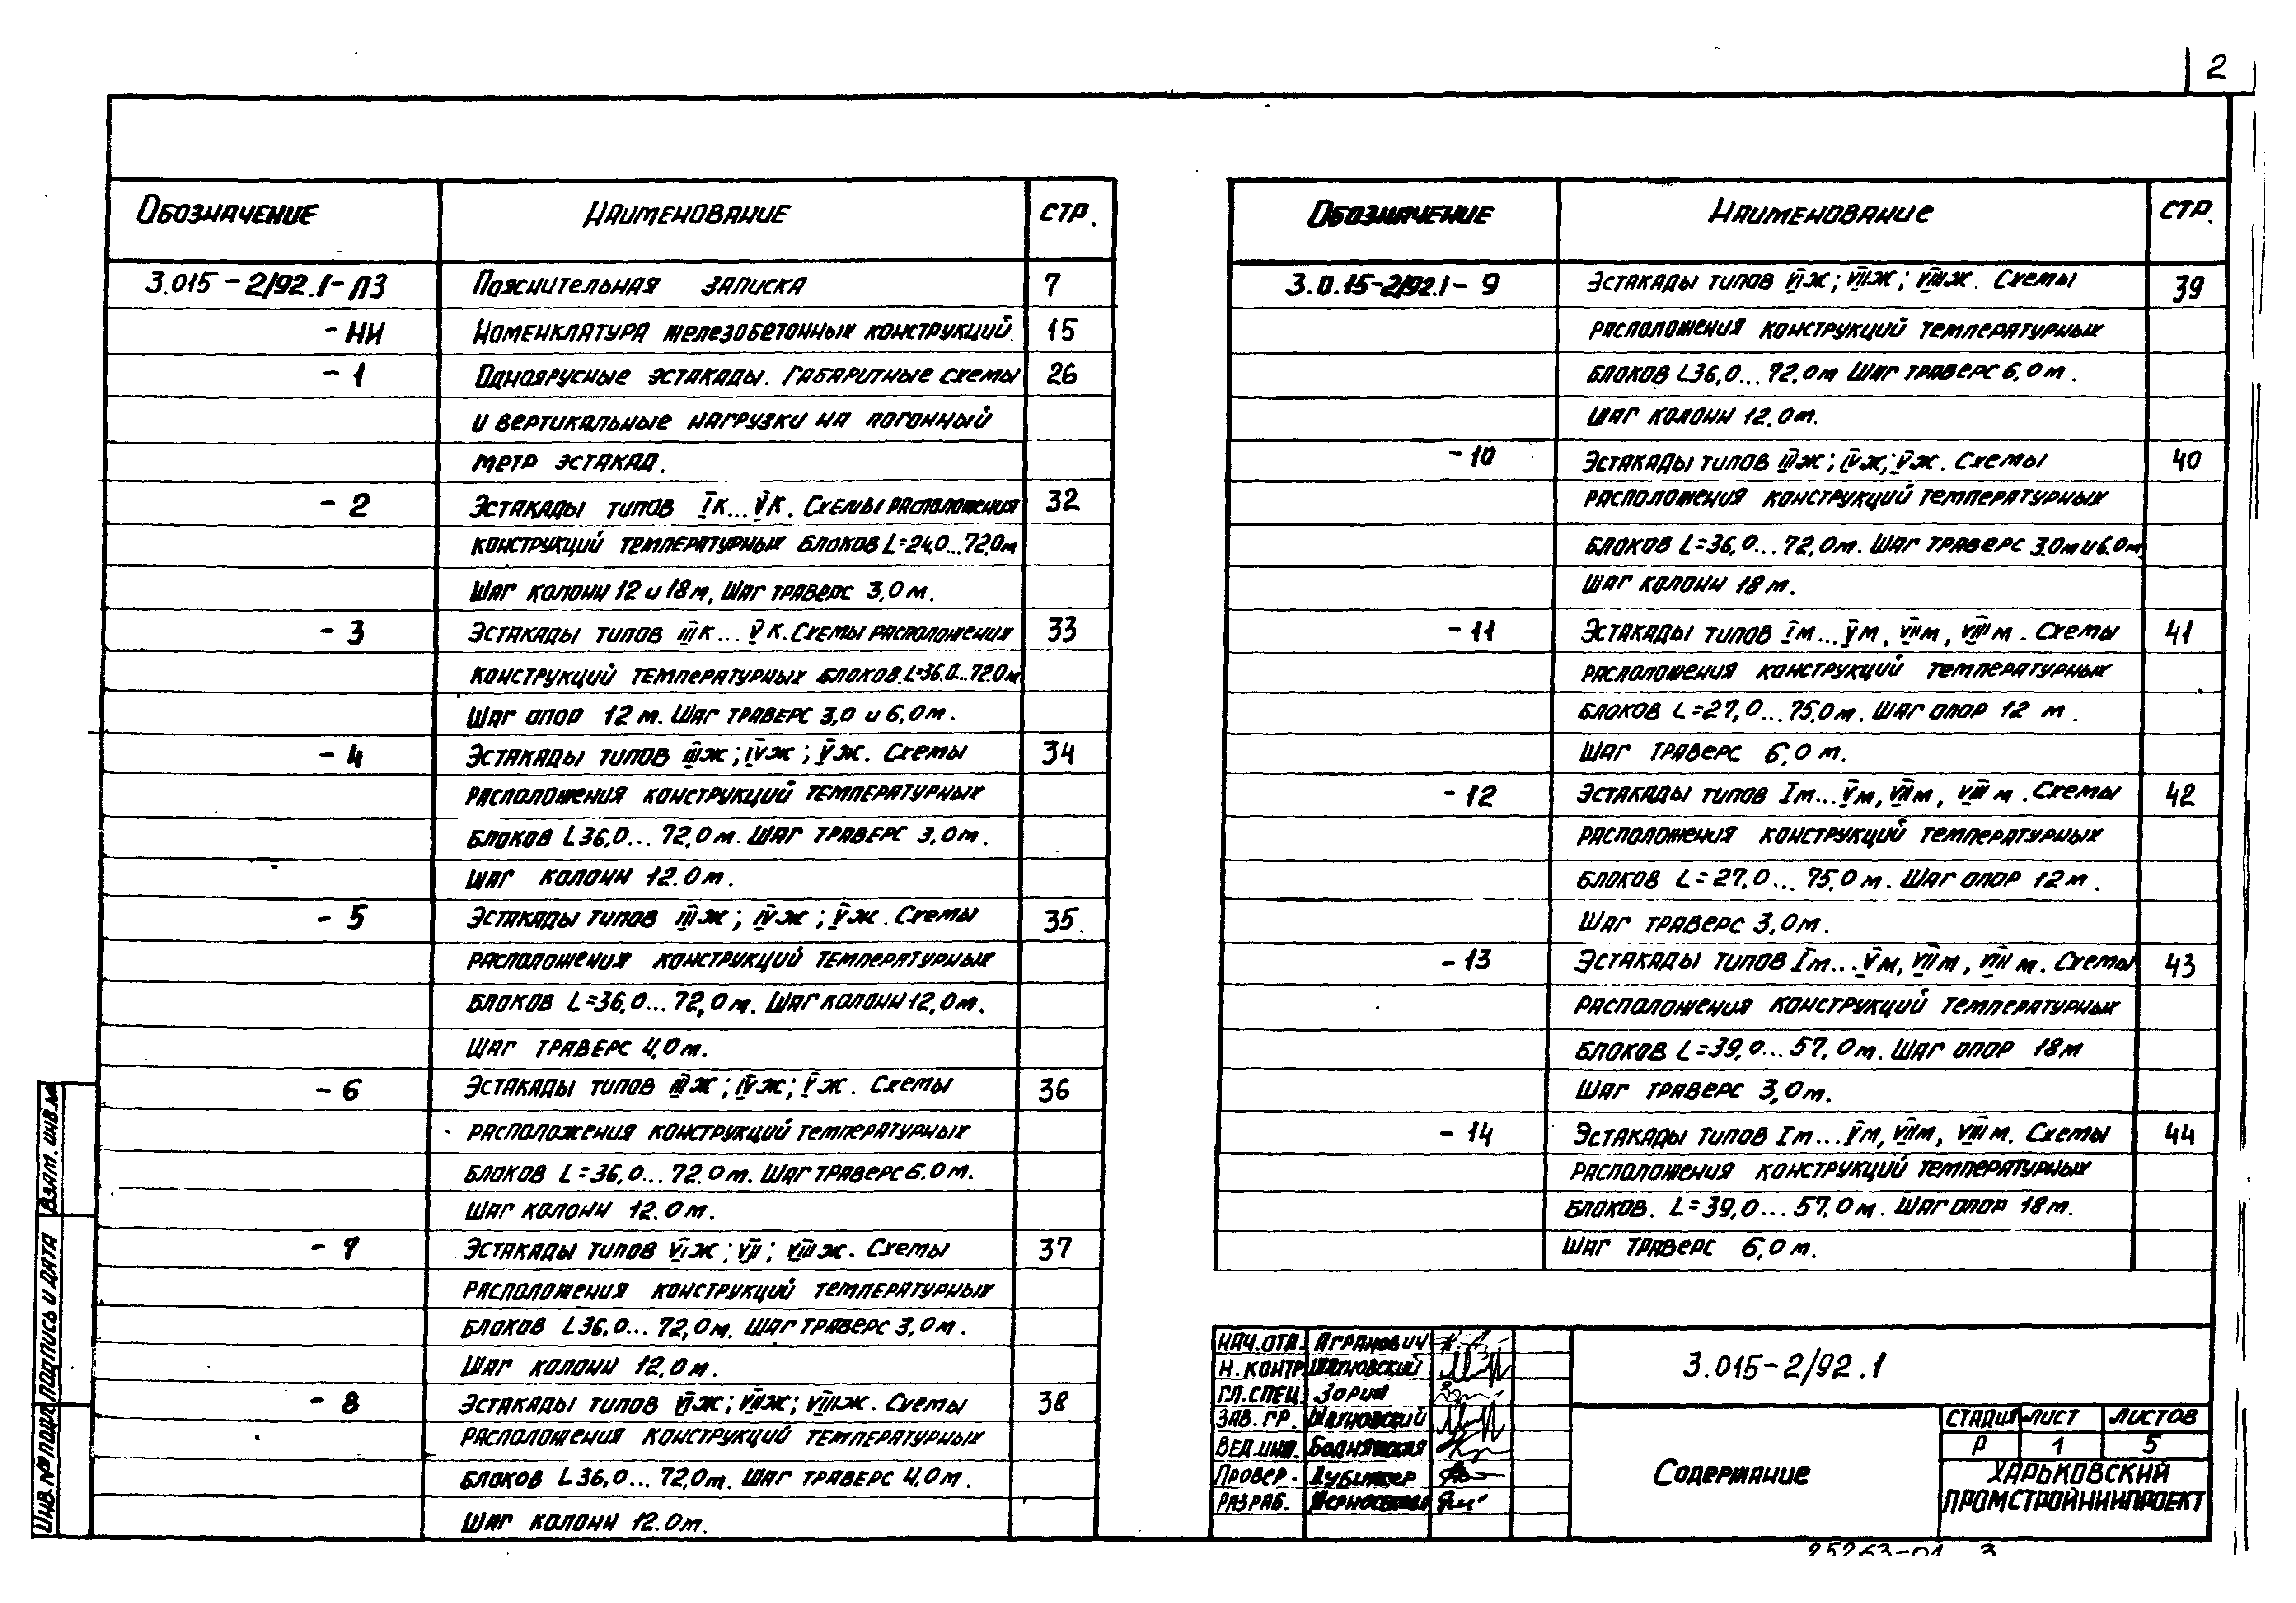 2
Обозначение Наименование Стр.
3.015-2/92.1-ПЗ Пояснительная записка 7
-НИ Номенклатура железобетонных конструкций. 15
-1 Одноярусные эстакады. Габаритные схемы 26
и вертикальные нагрузки на погонный
метр эстакад.
-2 Эстакады типов Iк...Vк. Схемы расположения 32
конструкций температурных блоков L=24,0...72,0м
Шаг колонн 12 и 18м, Шаг траверс 3,0м.
-3 Эстакады типов IIIк...Vк. Схемы расположения 33
конструкций температурных блоков. L=36.0...72.0м
Шаг опор 12м. Шаг траверс 3,0 и 6,0м.
-4 Эстакады типов IIIж; IVж; Vж. Схемы 34
расположения конструкций температурных
блоков L36,0...72,0м. Шаг траверс 3,0м.
шаг колонн 12.0м.
-5 Эстакады типов IIIж; IVж; Vж. Схемы 35.
расположения конструкций температурных
блоков L=36,0...72,0м. Шаг колонн 12,0м.
Шаг траверс 4,0м.
-6 Эстакады типов IIIж; IVж; Vж. Схемы 36
расположения конструкций температурных
блоков L=36,0...72.0м. Шаг траверс 6.0м.
шаг колонн 12.0м.
-7 Эстакады типов VIж; VII; VIIIж. Схемы 37
расположения конструкций температурных
блоков L36,0...72,0м. Шаг траверс 3,0м.
Шаг колонн 12,0м.
-8 Эстакады типов VIж; VIIж; VIIIж. Схемы 38
расположения конструкций температурных
блоков L36,0...72,0м. Шаг траверс 4,0м.
Шаг колонн 12.0м.
Обозначение Наименование Стр.
3.0.15-2/92.1-9 Эстакады типов VIж; VIIж; VIIIж. Схемы 39
расположения конструкций температурных
блоков L36,0...72,0м Шаг траверс 6,0м.
Шаг колонн 12,0м.
-10 Эстакады типов IIIж; IVж; Vж. Схемы 40
расположения конструкций температурных
блоков L=36,0...72,0м. Шаг траверс 3.0м и 6.0м
Шаг колонн 18м.
-11 Эстакады типов Iм...Vм, VIIм, VIIIм. Схемы 41
расположения конструкций температурных
блоков L=27,0...75.0м. Шаг опор 12 м.
Шаг траверс 6,0м.
-12 Эстакады типов Iм...Vм, VIIм, VIIIм. Схемы 42
расположения конструкций температурных
блоков L=27,0...75,0м. Шаг опор 12м.
Шаг траверс 3,0м.
-13 Эстакады типов Iм...Vм, VIIм, VIIIм. Схемы 43
расположения конструкций температурных
блоков L=39,0...57,0м. Шаг опор 18м
Шаг траверс 3,0м.
-14 Эстакады типов Iм...Vм, VIIм, VIIIм. Схемы 44
расположения конструкций температурных
блоков. L=39,0...57,0м. Шаг опор 18м.
Шаг траверс 6,0м.
Нач.отд. Агранович
Н.контр Шатновский
Гл.спец Зорин
Зав.гр. Шатновский
Вед.инж. Боднянская
Провер.
Разраб.
3.015-2/92.1
Содержание
Стадия Лист Листов
Р 1 5
Харьковский
Промстройниипроект
Взам. инв.№
Подпись и дата
Инв.№ подл
25263-01 3